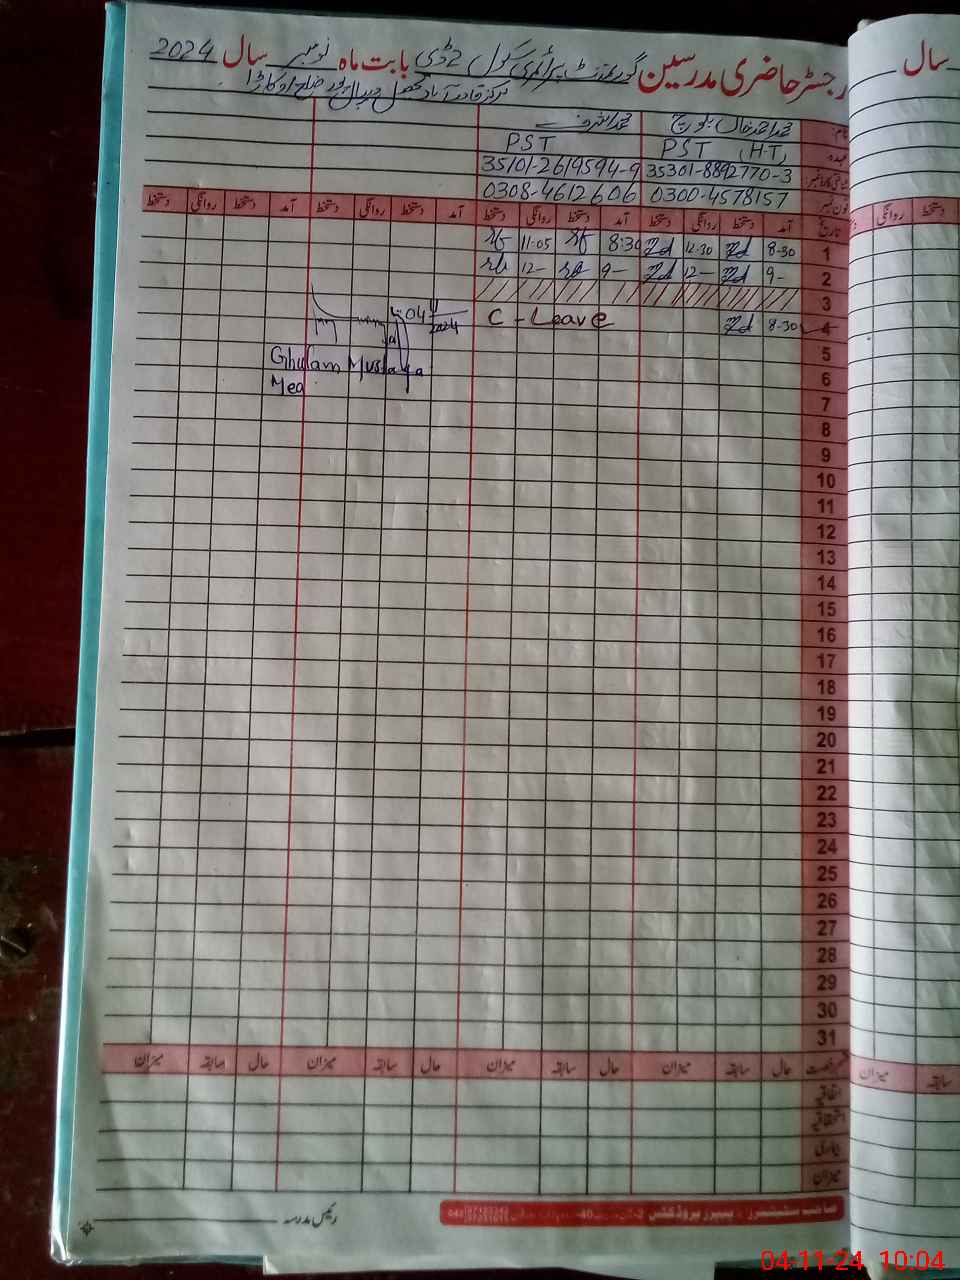 سال
رجسٹر حاضری مدرسین گورنمنٹ پرائمری سکول 2 ڈی بابت ماہ نومبر سال 2024
مرکز قادر آباد تحصیل دیپالپور ضلع اوکاڑا
نام: محمد احمد خان بلوچ محمد اشرف
عہدہ PST (H.T) PST
شناختی کارڈ نمبر 35301-8892770-3 35101-2619594-9
فون نمبر 0300-4578157 0308-4612606
تاریخ آمد دستخط روانگی دستخط آمد دستخط روانگی دستخط آمد دستخط روانگی دستخط آمد دستخط روانگی دستخط
دستخط روانگی
1 8-30 12-30 8:30 11-05
2 9- 12- 9- 12-
3
4 8-30 C-Leave
04
2024
5
Ghulam Mustafa
6
Mea
7
8
9
10
11
12
13
14
15
16
17
18
19
20
21
22
23
24
25
26
27
28
29
30
31
حال سابقہ میزان حال سابقہ میزان حال سابقہ میزان حال سابقہ میزان
سابقہ میزان
اتفاقیہ
استحقاقیہ
بیماری
میزان
رئیس مدرسہ
04-11-24 10:04